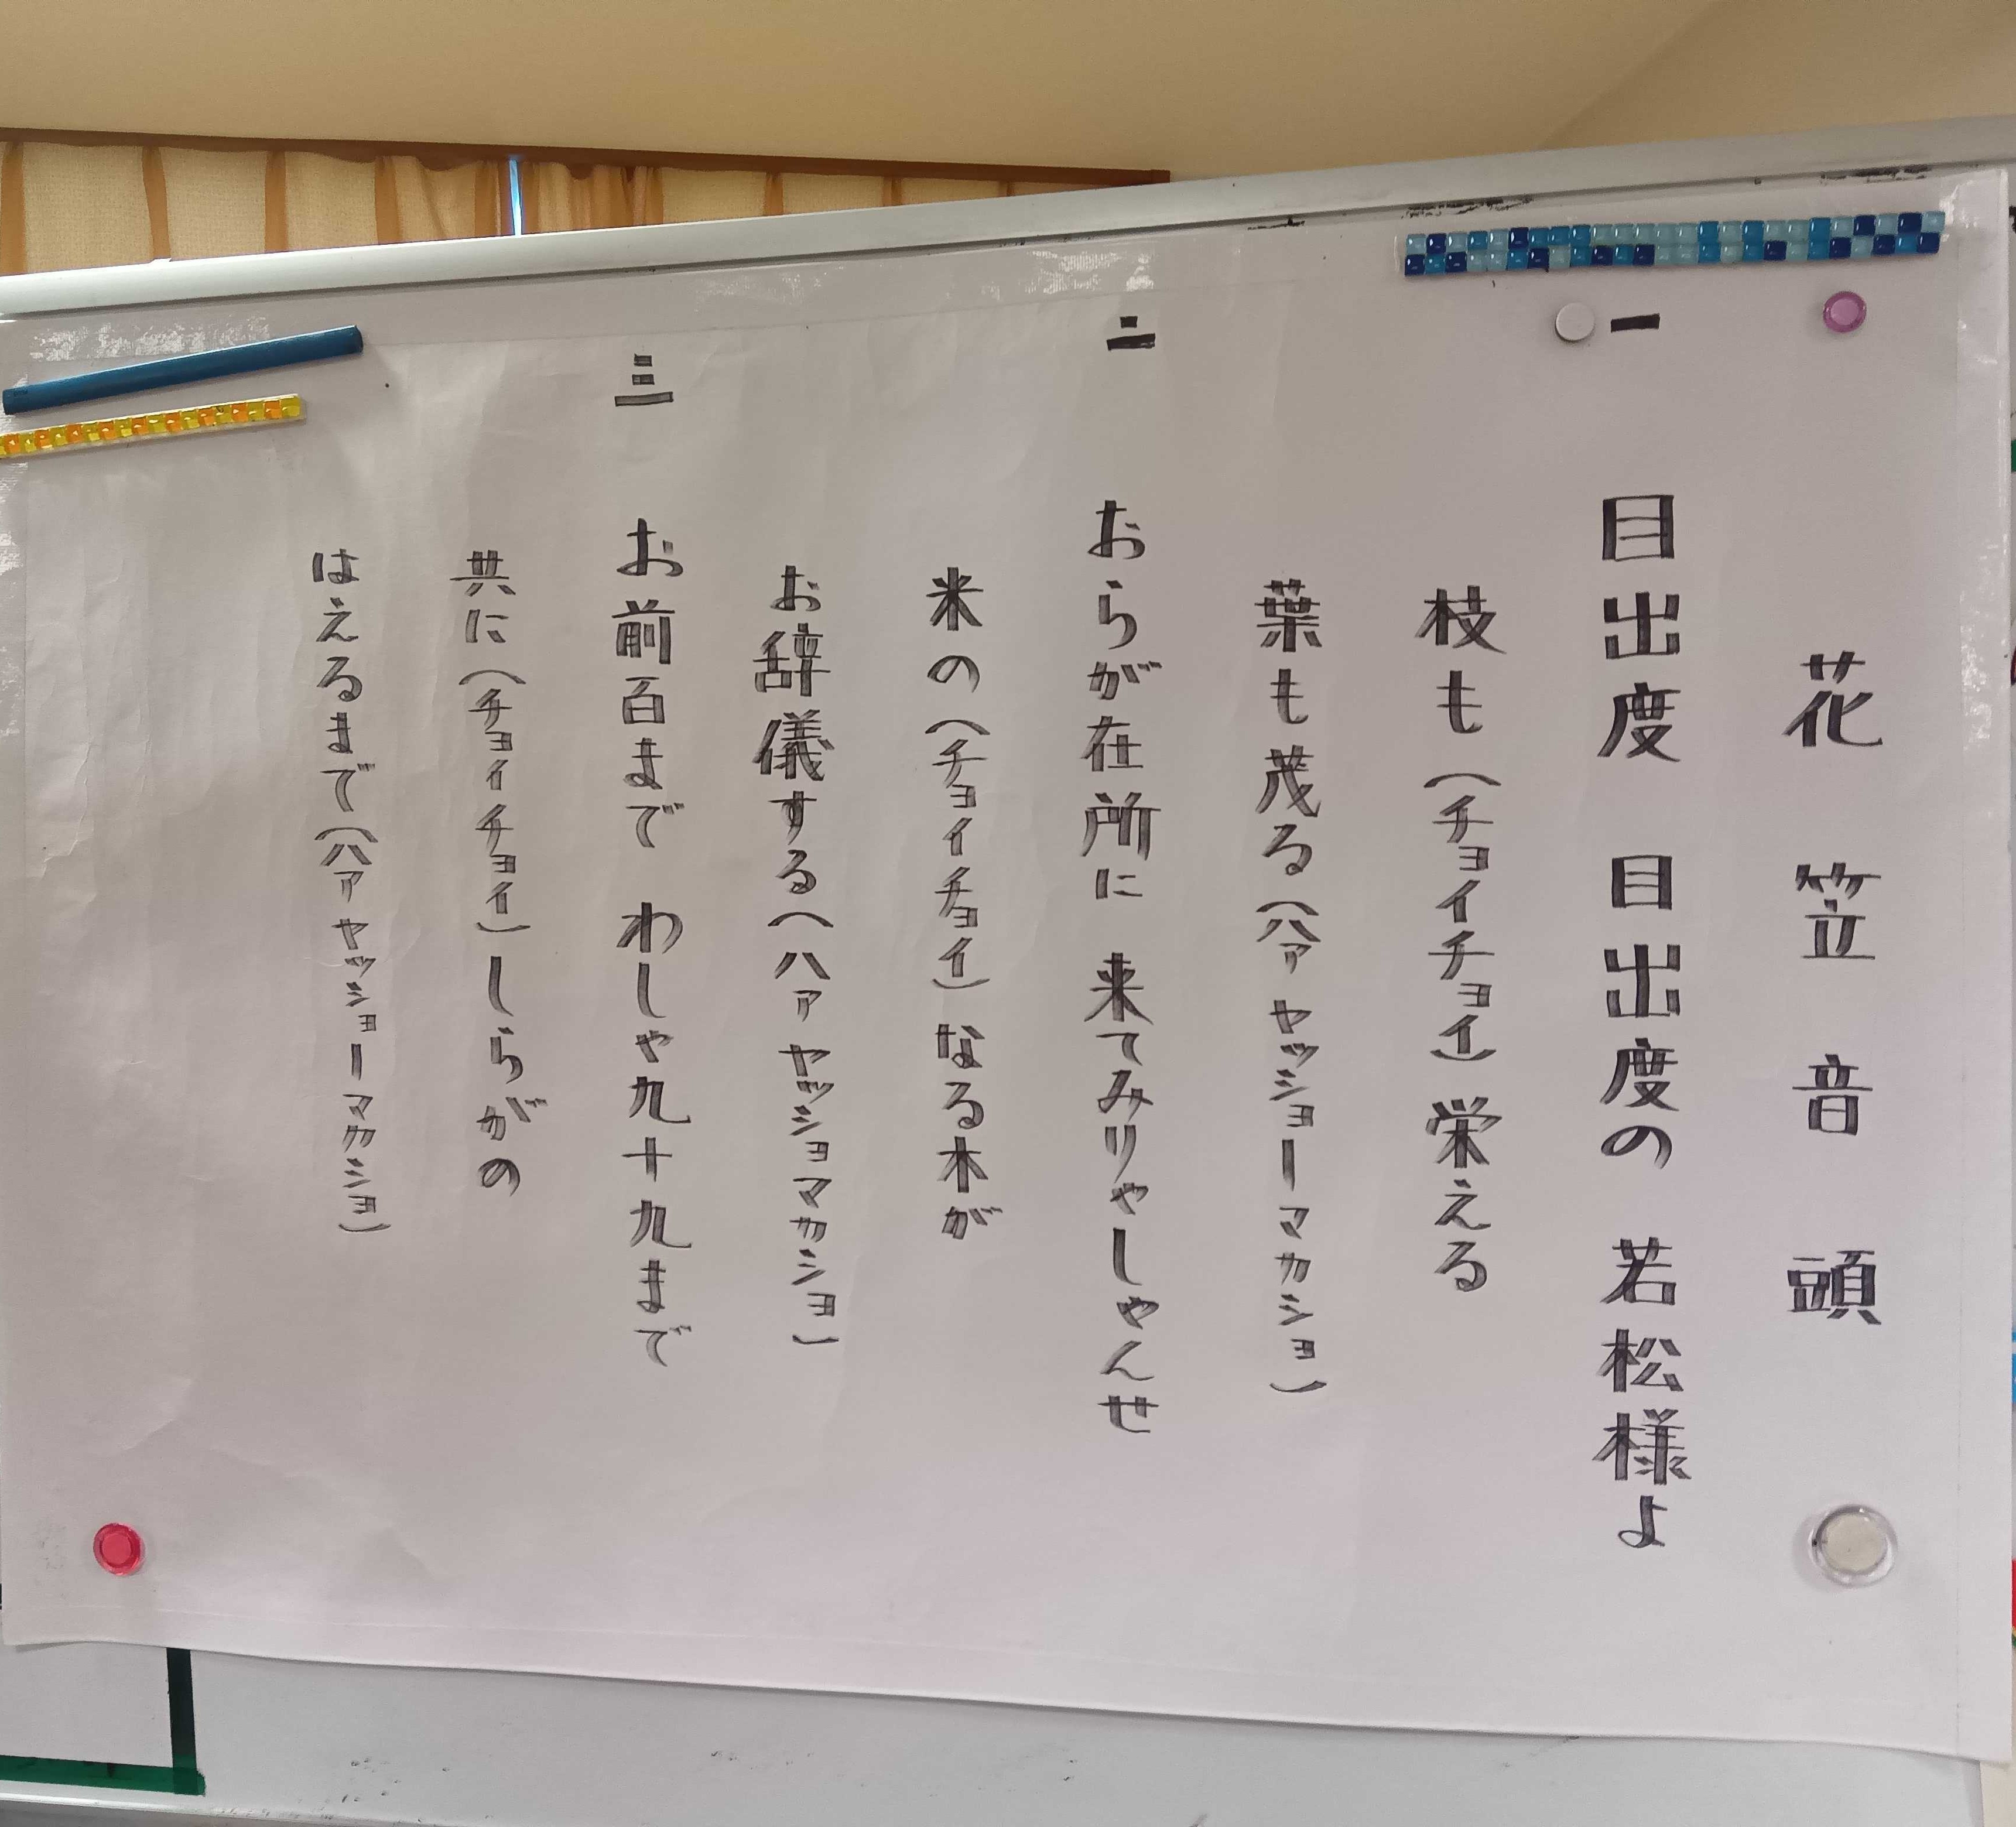 花笠音頭
一 目出度 目出度の 若松様よ
枝も(チョイチョイ)栄える
葉も茂る(ハァ ヤッショーマカショ)
二 おらが在所に 来てみりゃしゃんせ
米の(チョイチョイ)なる木が
お辞儀する(ハァ ヤッショマカショ)
三 お前百まで わしゃ九十九まで
共に(チョイチョイ)しらがの
はえるまで(ハァ ヤッショーマカショ)